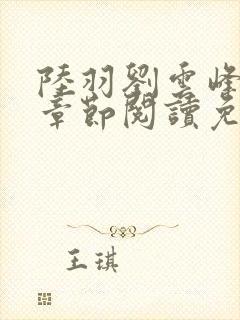 陸羽劉雲峰
章節閱讀免
王琪